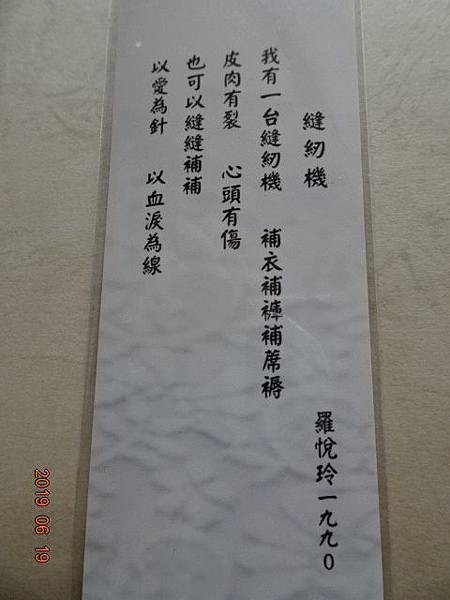 縫紉機
羅悅玲一九九0
我有一台縫紉機 補衣補褲補蓆褥
皮肉有裂 心頭有傷
也可以縫縫補補
以愛為針 以血淚為線
2019 06 19